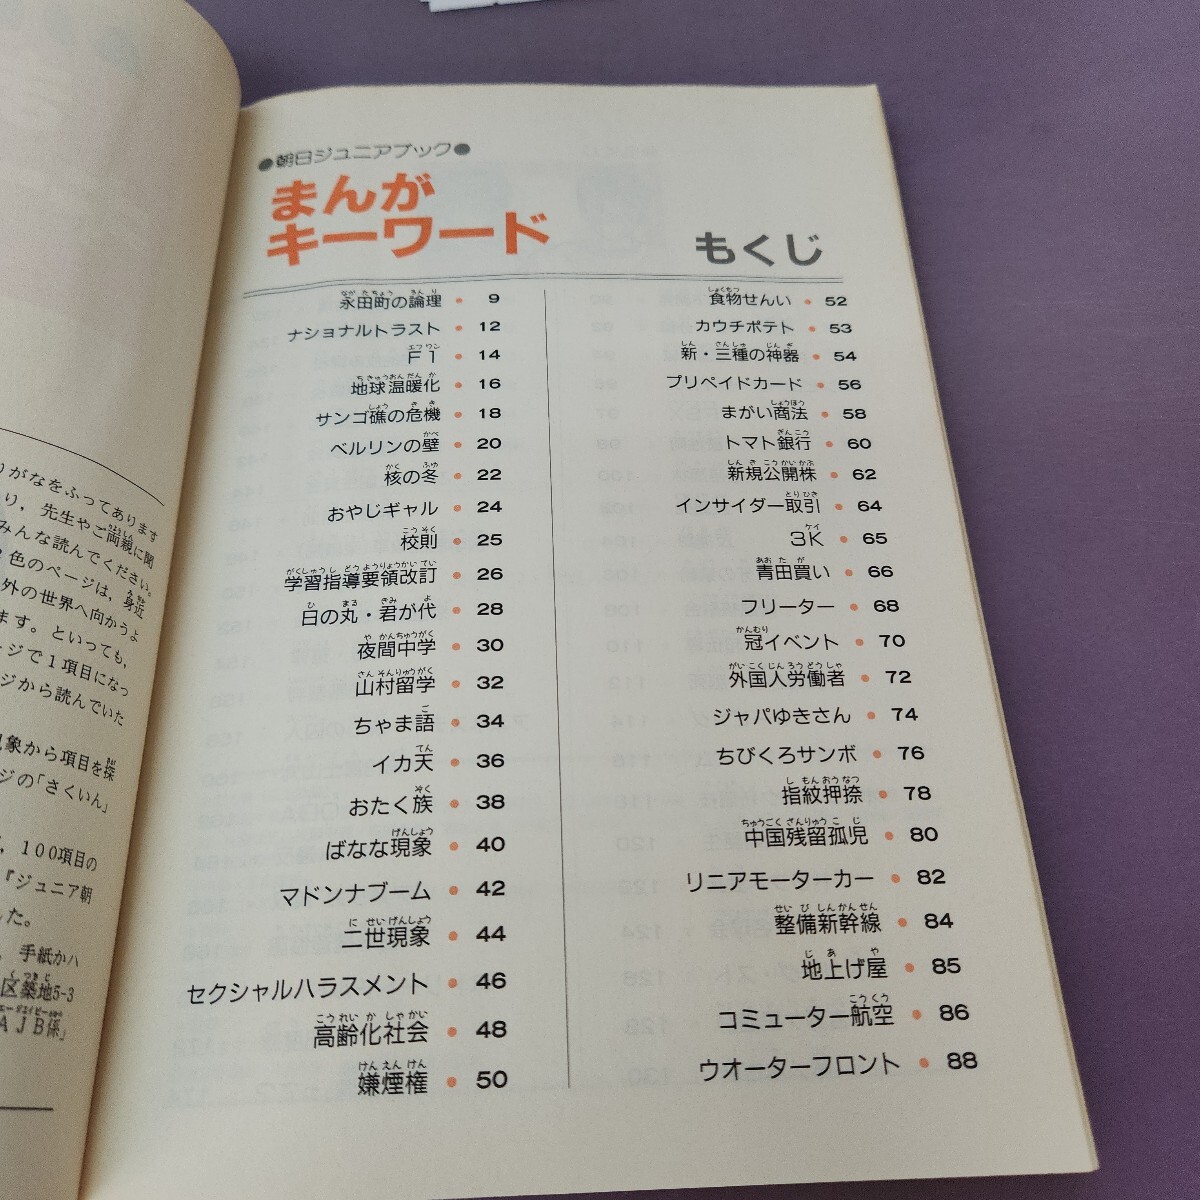 ●朝日ジュニアブック●
まんが
キーワード
もくじ
永田町の論理・9
ナショナルトラスト・12
F1・14
地球温暖化・16
サンゴ礁の危機・18
ベルリンの壁・20
核の冬・22
おやじギャル・24
校則・25
学習指導要領改訂・26
日の丸・君が代・28
夜間中学・30
山村留学・32
ちゃま語・34
イカ天・36
おたく族・38
ばなな現象・40
マドンナブーム・42
二世現象・44
セクシャルハラスメント・46
高齢化社会・48
嫌煙権・50
食物せんい・52
カウチポテト・53
新・三種の神器・54
プリペイドカード・56
まがい商法・58
トマト銀行・60
新規公開株・62
インサイダー取引・64
3K・65
青田買い・66
フリーター・68
冠イベント・70
外国人労働者・72
ジャパゆきさん・74
ちびくろサンボ・76
指紋押捺・78
中国残留孤児・80
リニアモーターカー・82
整備新幹線・84
地上げ屋・85
コミューター航空・86
ウオーターフロント・88
りがなをふってあります
り，先生やご両親に聞
みんな読んでください。
色のページは，身近
外の世界へ向かうよ
ます。といっても，
ージで1項目になっ
ジから読んでいた
現象から項目を探
ジの「さくいん」
，100項目の
『ジュニア朝
した。
，手紙かハ
区築地5-3
AJB係」